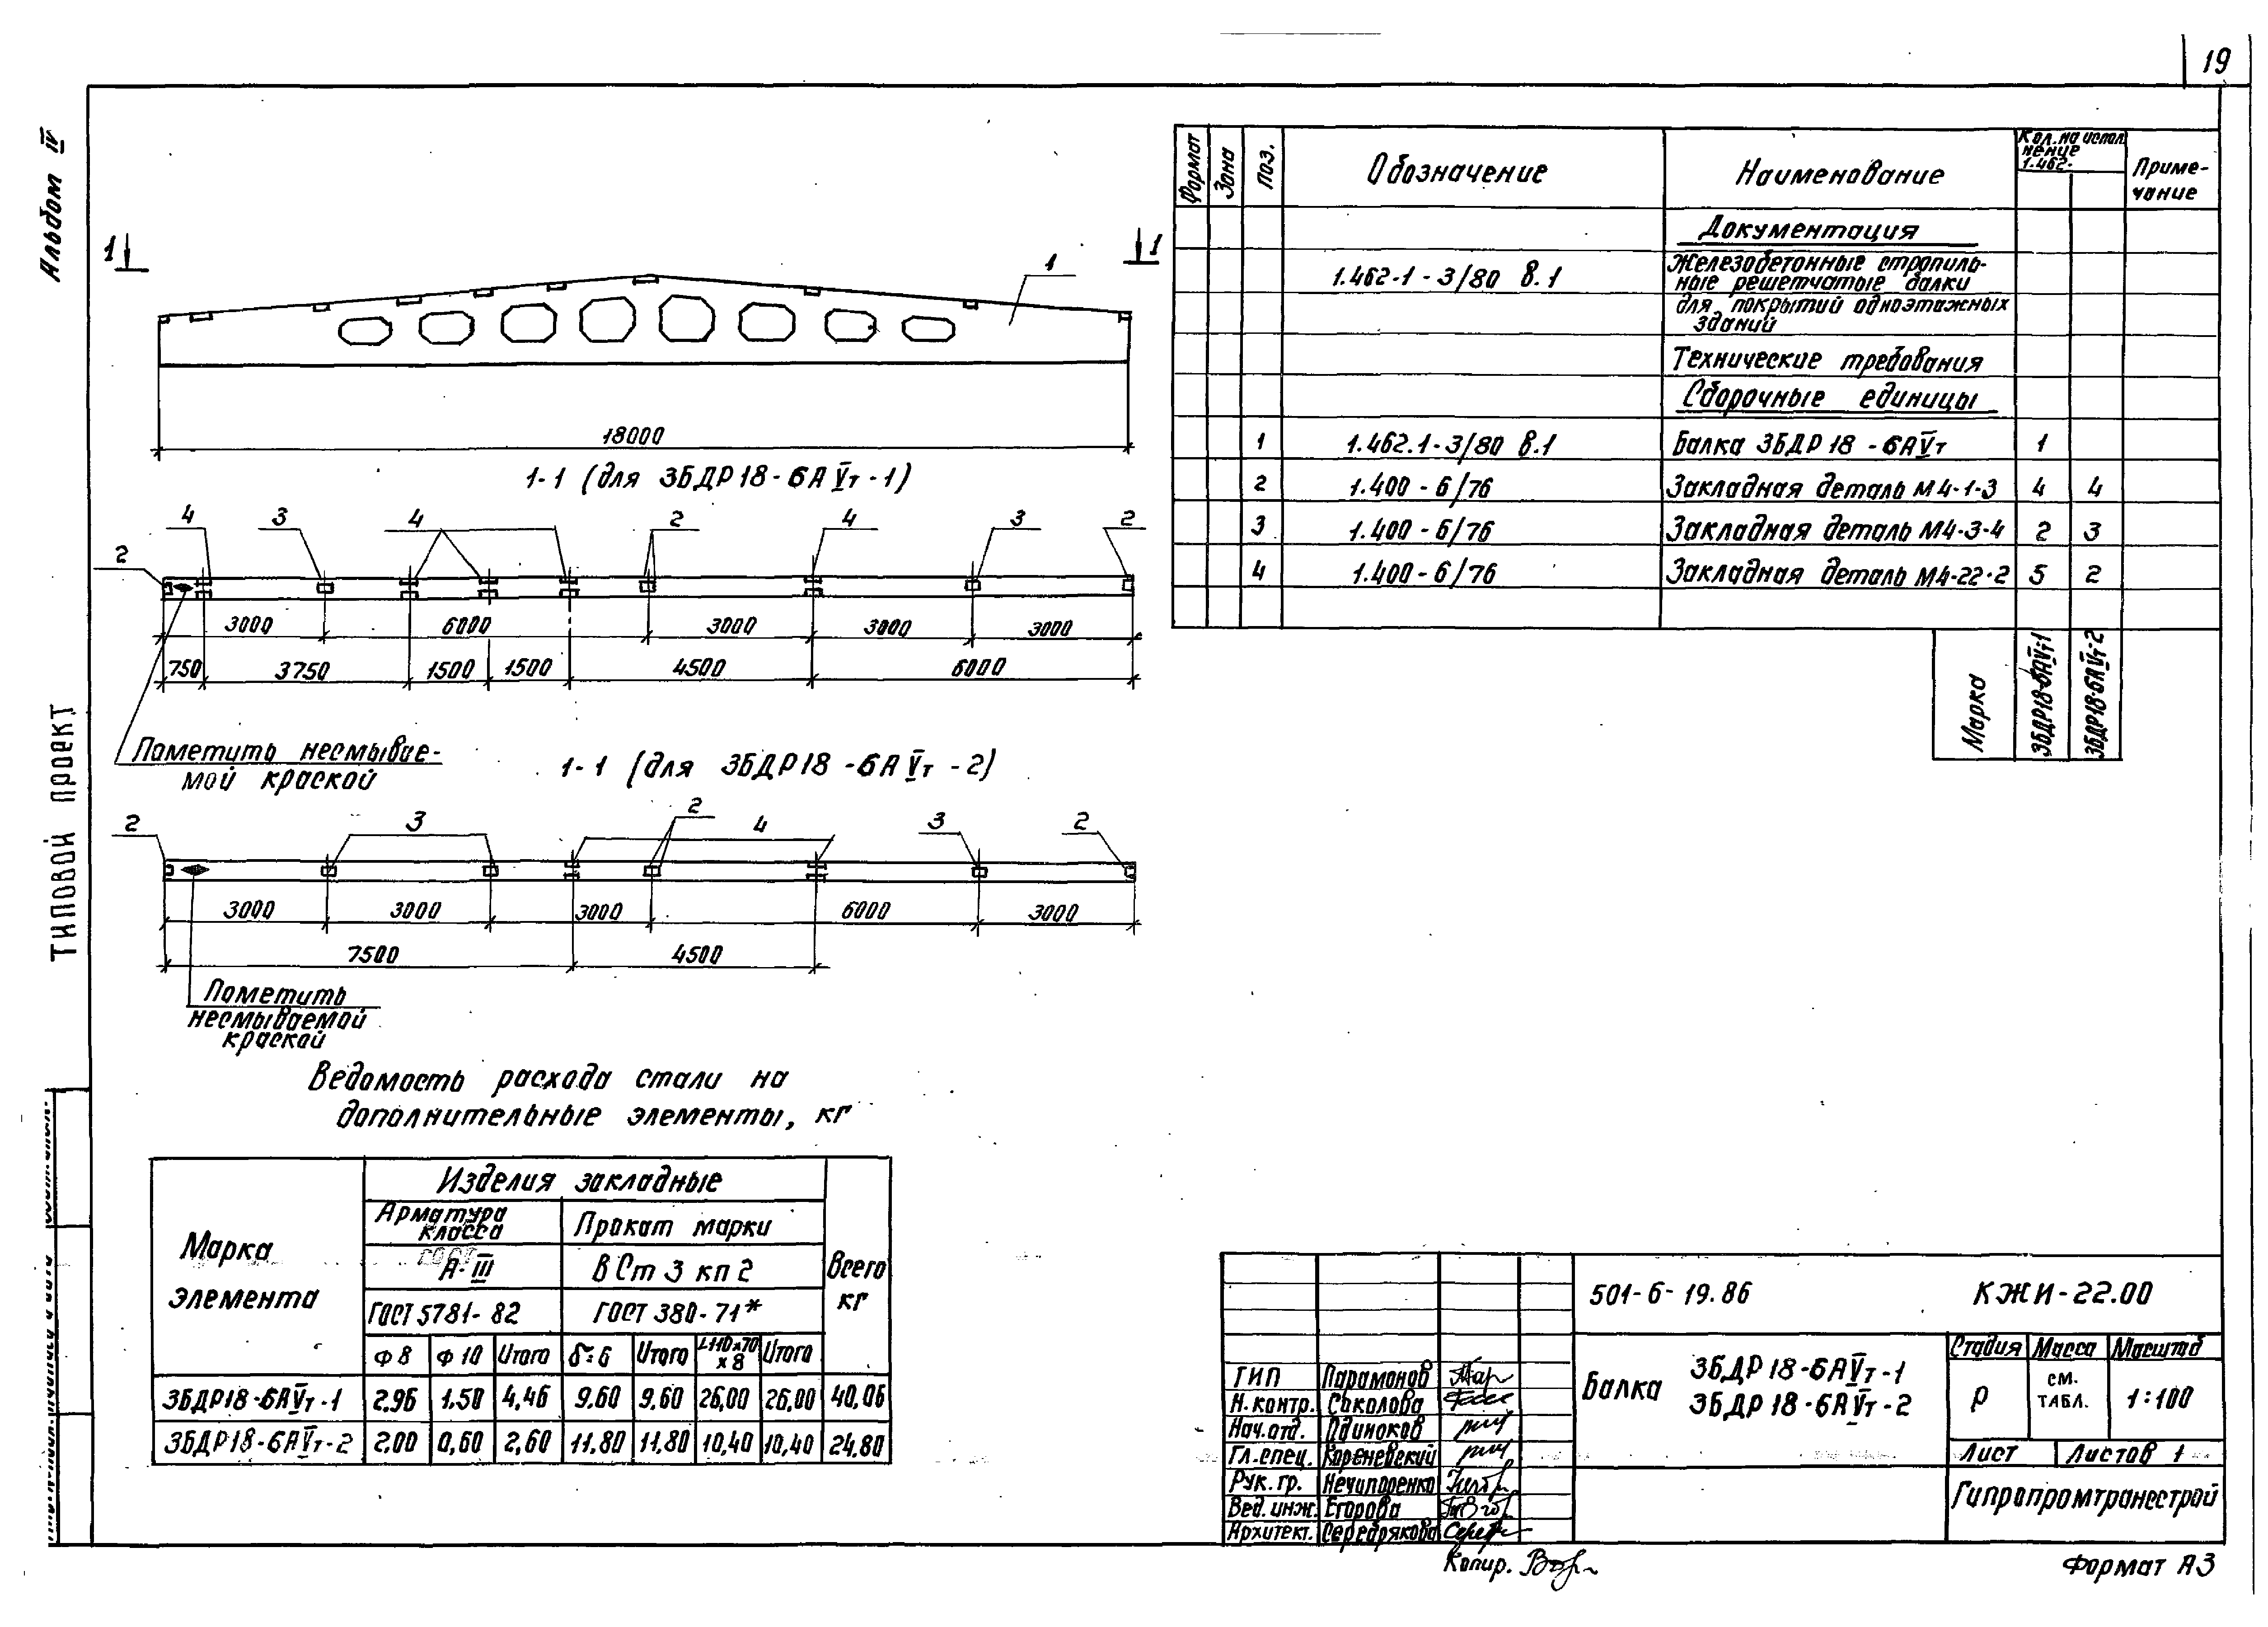 19
Альбом IV
ТИПОВОЙ ПРОЕКТ
1
1
1
18000
1-1 (для 3БДР18-6АVт-1)
4
3
4
2
4
3
2
2
3000
6000
3000
3000
3000
750
3750
1500
1500
4500
6000
Пометить несмывае-
мой краской
1-1 (для 3БДР18-6АVт-2)
2
3
2
4
3
2
3000
3000
3000
6000
3000
7500
4500
Пометить
несмываемой
краской
Ведомость расхода стали на
дополнительные элементы, кг
Марка элемента
Изделия закладные
Всего кг
Арматура класса
Прокат марки
А-III
ВСт 3 кп 2
ГОСТ 5781-82
ГОСТ 380-71*
Ф8 Ф10 Итого δ=6 Итого L110x70x8 Итого
3БДР18-6АVт-1 2.96 1.50 4,46 9.60 9.60 26,00 26,00 40,06
3БДР18-6АVт-2 2.00 0,60 2,60 11.80 11,80 10,40 10,40 24,80
Формат Зона Поз. Обозначение Наименование Кол. на испол нение 1.462- Приме-чание
Документация
1.462-1-3/80 В.1 Железобетонные стропиль-
ные решетчатые балки
для покрытий одноэтажных
зданий
Технические требования
Сборочные единицы
1 1.462.1-3/80 В.1 Балка 3БДР18-6АVт 1
2 1.400-6/76 Закладная деталь М4-1-3 4 4
3 1.400-6/76 Закладная деталь М4-3-4 2 3
4 1.400-6/76 Закладная деталь М4-22-2 5 2
Марка 3БДР18-6АVт-1 3БДР18-6АVт-2
501-6-19.86 КЖИ-22.00
Балка 3БДР18-6АVт-1
3БДР18-6АVт-2
Стадия Масса Масштаб
Р см. ТАБЛ. 1:100
Лист Листов 1
Гипропромтрансстрой
ГИП Парамонов
Н.контр. Соколова
Нач.отд. Одиноков
Гл.спец. Кореневский
Рук.гр. Нечипоренко
Вед.инж. Егорова
Архитект. Серебрякова
Копир.
Формат А3